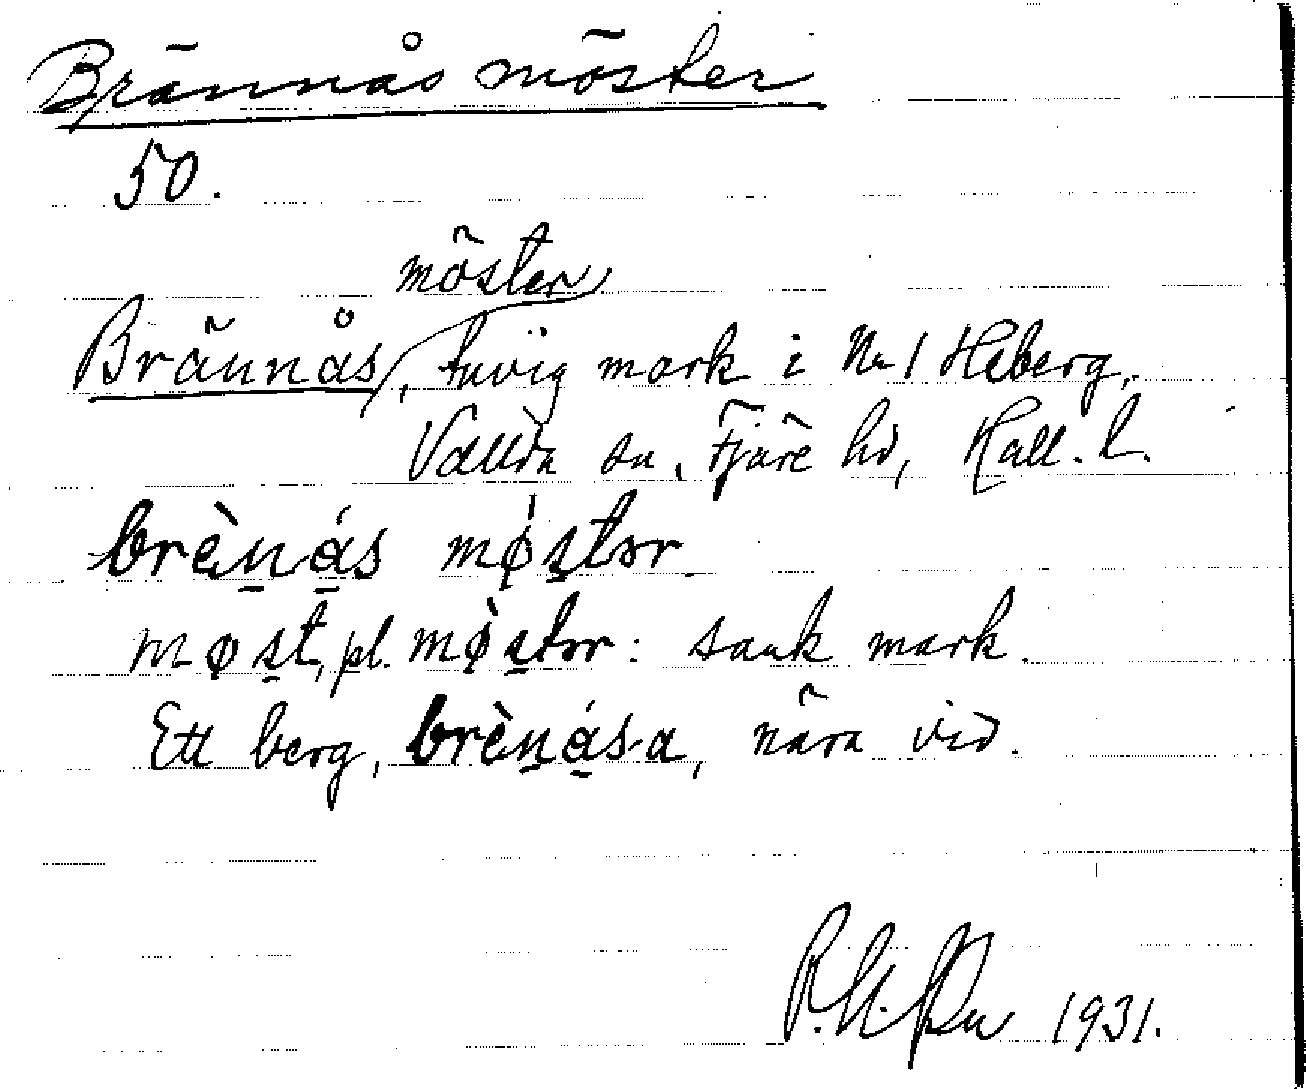 Brännås möster
50.
möster
Brännås, tuvig mark i No 1 Heberg,
Vallda sn, Fjäre hd, Hall. l.
brènás mǿstər
møst, pl. mø̀stər: sank mark.
Ett berg, brènása, nära vid.
1931.